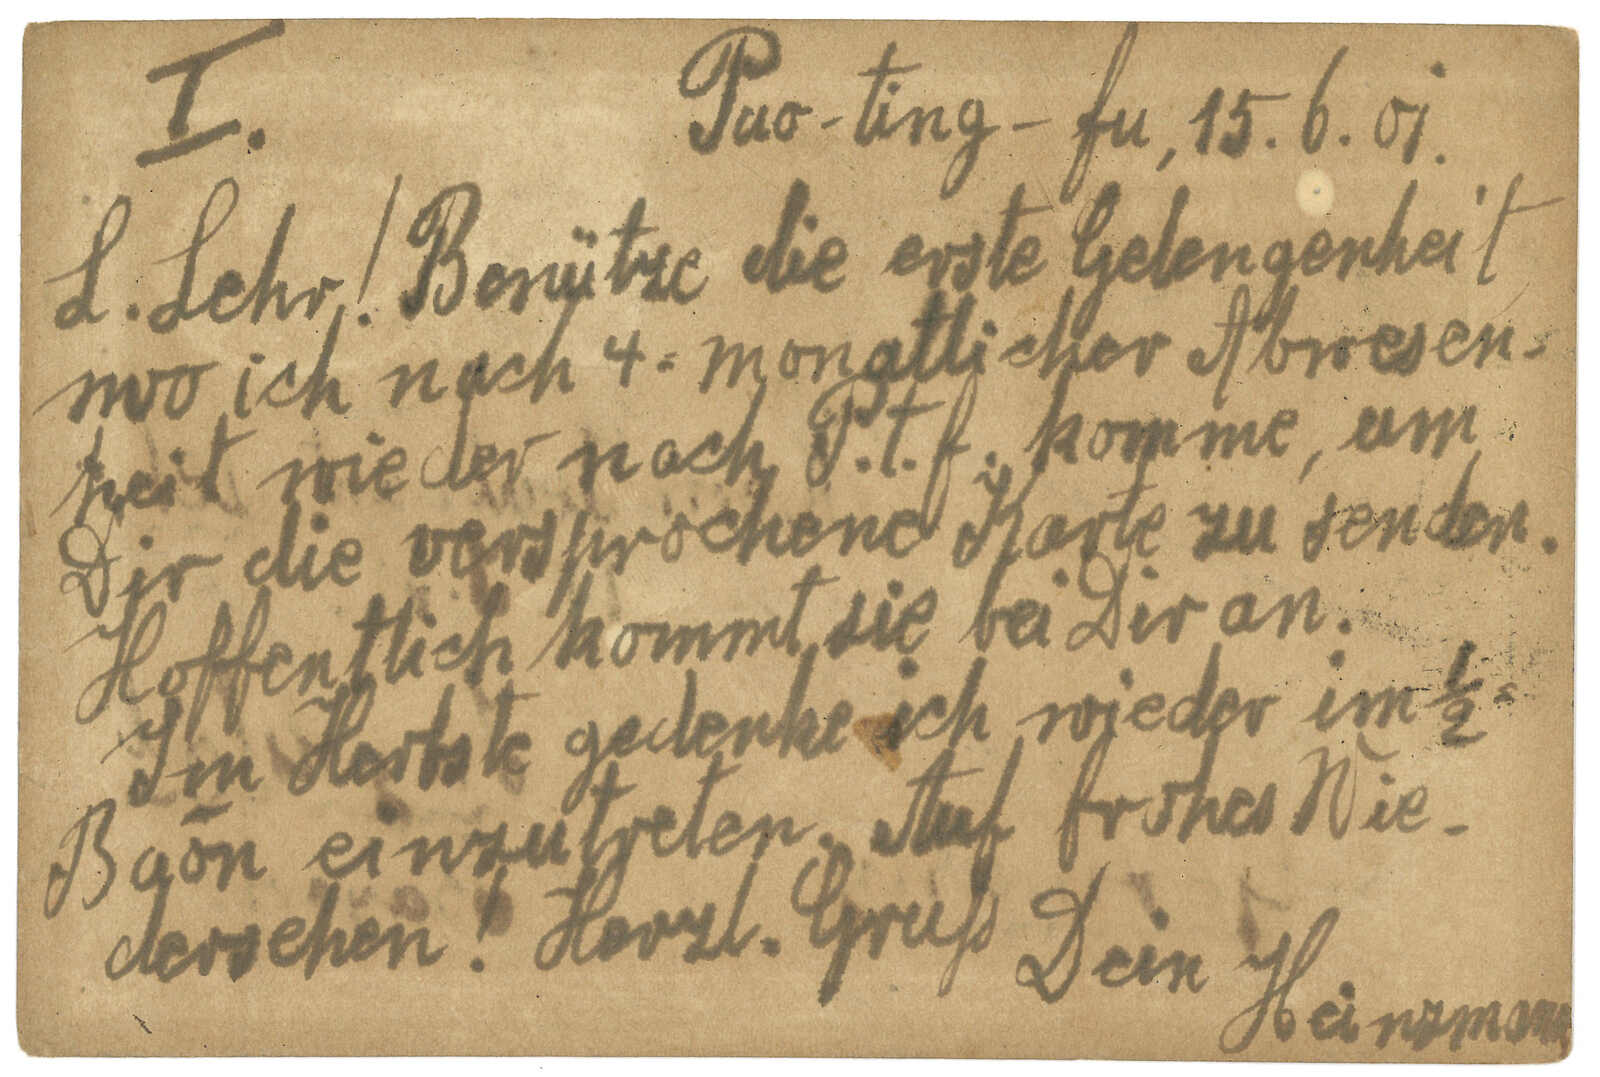 I.
Pao-ting-fu, 15. 6. 01.
L. Lehr! Benütze die erste Gelengenheit
wo ich nach 4=monatlicher Abwesen-
heit wieder nach P.t.f. komme, um
Dir die versprochene Karte zu senden.
Hoffentlich kommt sie bei Dir an.
Im Herbste gedenke ich wieder im ½=
Baōn einzutreten. Auf frohes Wie-
dersehen! Herzl. Gruß Dein
Heinzmann